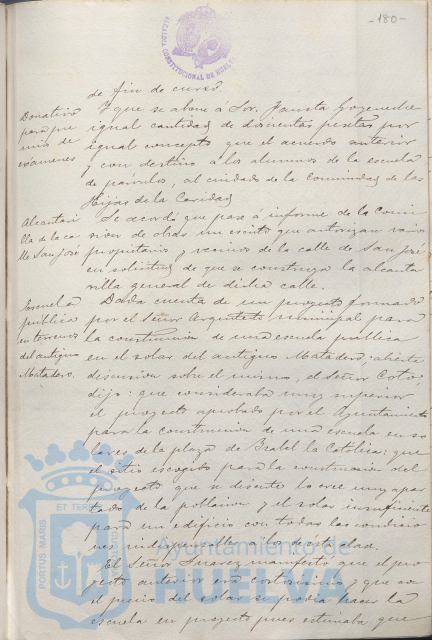 -180-
ALCALDIA CONSTITUCIONAL DE HUELVA
de fin de curso.
Donativo para premios de exámenes
Y que se abone á Sor. Fausta Goyeneche
igual cantidad de doscientas pesetas por
igual concepto que el acuerdo anterior
y con destino á los alumnos de la escuela
de párvulos, al cuidado de la Comunidad de las
Hijas de la Caridad
Alcantarilla de la calle San José
Se acordó que pase á informe de la Comi
sión de obras un escrito que autorizan varios
propietarios y vecinos de la calle de San José
en solicitud de que se construya la alcanta
rilla general de dicha calle.
Escuela pública en terrenos del antiguo Matadero.
Dada cuenta de un proyecto formado
por el Señor Arquitecto municipal para
la construcción de una escuela pública
en el solar del antiguo Matadero, abierta
discusión sobre el mismo, el Señor Coto
dijo: que consideraba muy superior
el proyecto aprobado por el Ayuntamiento
para la construcción de una escuela en so
lares de la plaza de Isabel la Católica: que
el sitio escogido para la construcción del
proyecto que se discute lo cree muy apar
tado de la población y el solar insuficiente
para un edificio con todas las condicio
nes indispensables á los de esta clase.
El Señor Suarez manifestó que el pro
yecto anterior era costosísimo y que con
el precio del solar se podía hacer la
escuela en proyecto pues estimaba que
PORTUS MARIS ET TERRAE CUSTODIA
Ayuntamiento de
HUELVA